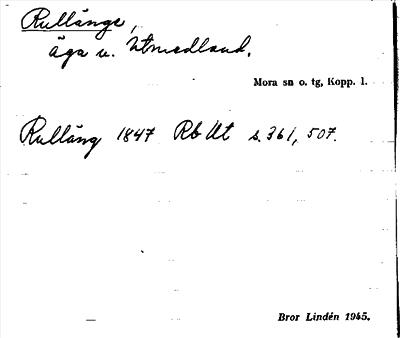 Rullänge,
äga u. Utmedland.
Mora sn o. tg, Kopp. l.
Rulläng 1847 Rb Ut s. 361, 507.
Bror Lindén 1945.